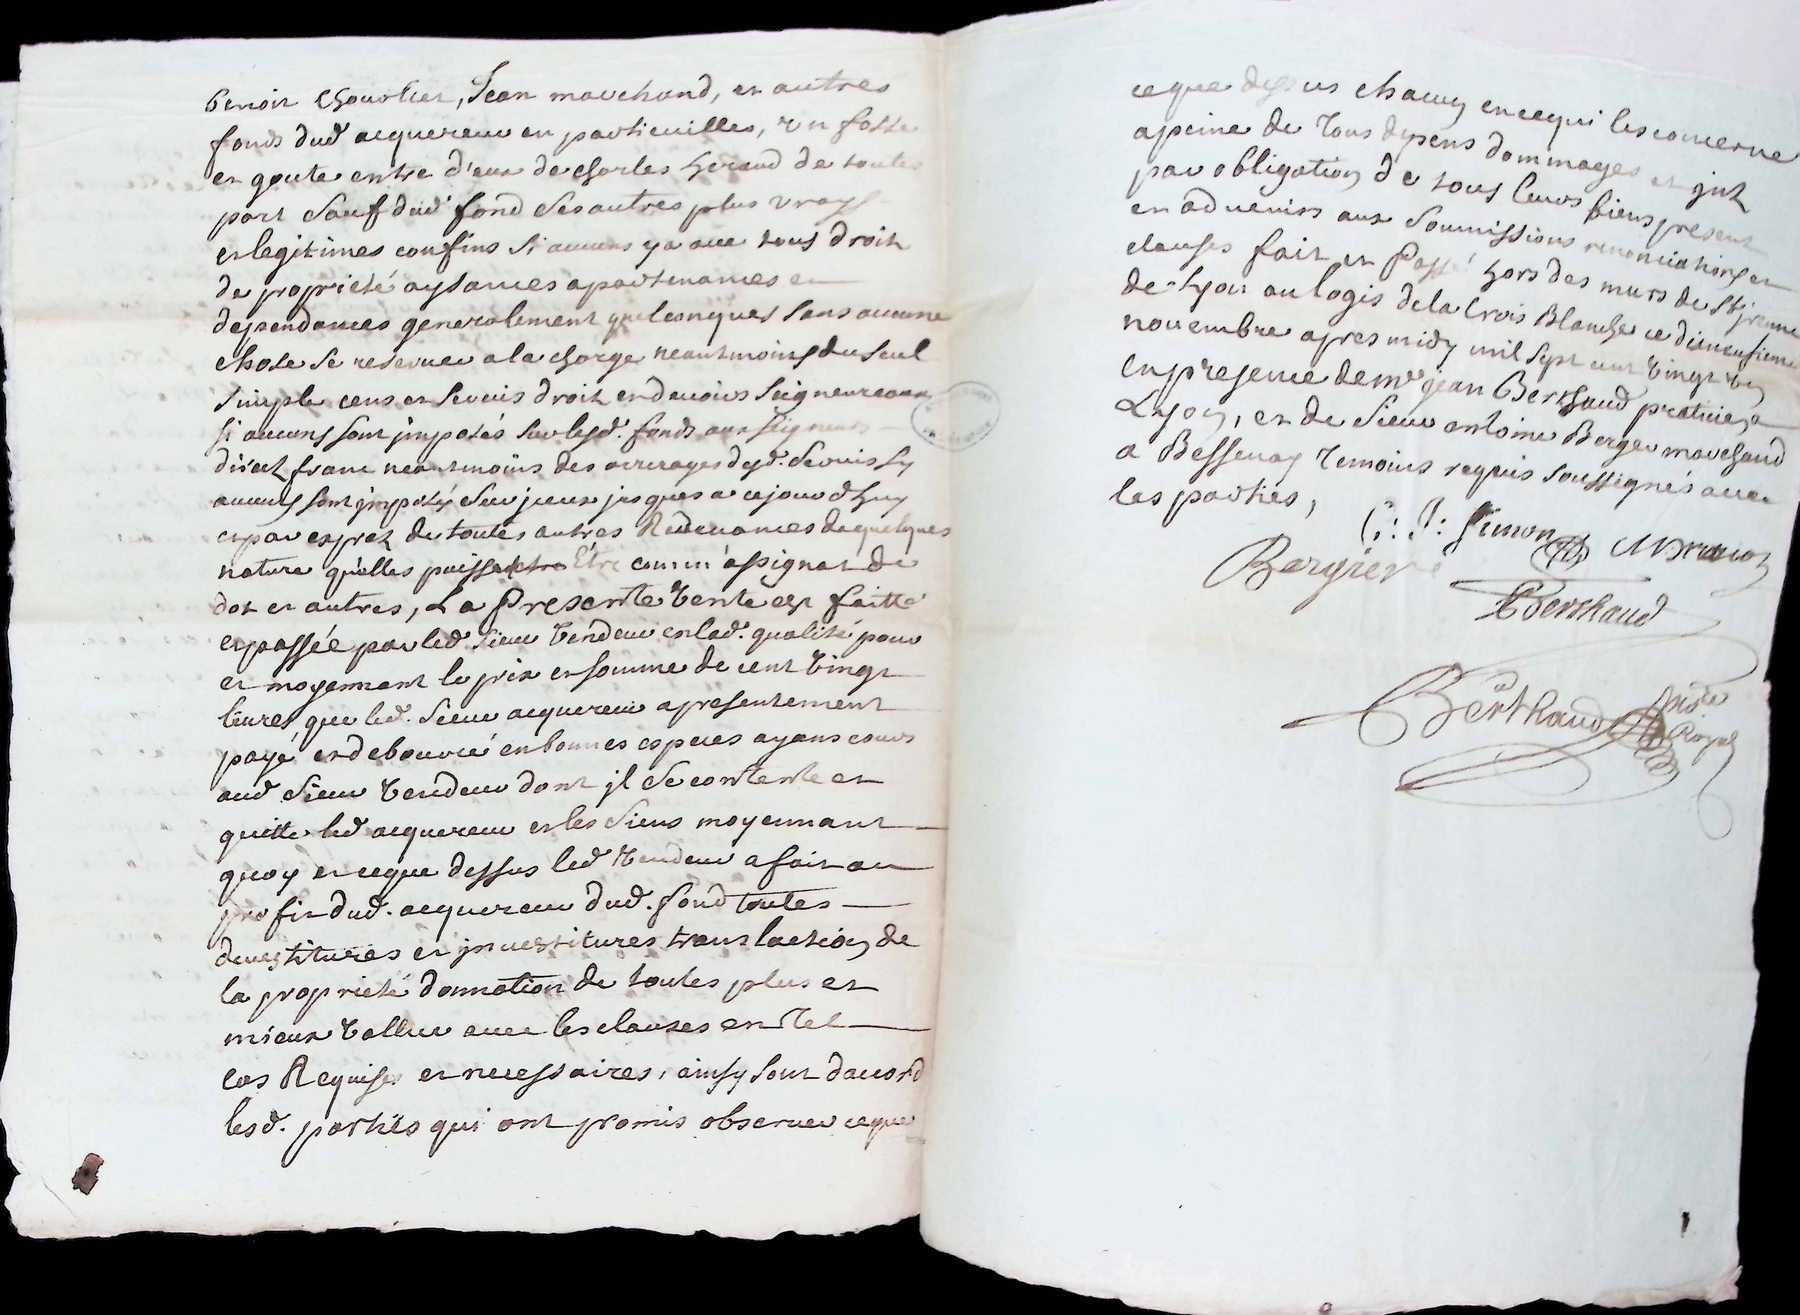 benoit Chourlier, Jean marchand, et autres
fonds dud acquereur en partieuilles, un fossé
et goute entre d'eux de Charles Geraud de toutes
part Sauf dud fond Ses autres plus vrays
et legitimes confins Si aucuns y a avec tous droit
de proprieté aysances apartenances et
dependances generalement quelconques Sans aucune
chose Se reserver a la charge neantmoins du Seul
Simple cens et Servis droit et devoirs Seigneureaux
Si aucuns sont jmposés Sur lesd. fonds aux Seigneurs
direct franc neantmoins des arrerages desd. Servis Sy
aucuns Sont jmposés Sur jceux jusques a cejourdhuy
et par exprez de toutes autres Redevances de quelques
nature qu'elles puissent Etre comm' assignat de
dot et autres, La Presente Vente est faitte
et passée par led. Sieur Vendeur en lad. qualité pour
et moyennant le prix et somme de cent Vingt
livres que led. Sieur acquereur a presentement
payé et debourcé en bonnes especes ayans cours
aud Sieur Vendeur dont jl Se contente et
quitte led acquereur et les Siens moyennant
quoy et ceque dessus led Vendeur a fait au
profit dud. acquereur dud. fond toutes
devestitures et jnvestitures translaction de
la proprieté donnation de toutes plus et
mieux Vallue avec les clauses en tel
cas Requises et necessaires, ainsy Sont daccord
lesd. parties qui ont promis observer ceque
ceque dessus chacun en cequi les concerne
a peine de Tous depens dommages et jnt
par obligation de tous leurs biens present
et advenirs aux Soumissions renonciations et
clauses fait et Passé hors des murs de St jrenne
de Lyon au logis dela Croix Blanche ce dixneufieme
novembre apres midy mil Sept cent Vingt
En presence de me jean Berthaud praticien a
Lyon, et de Sieur antoine Berger marchand
a Bessenay Temoins requis Soussignés avec
les parties,
C: P: Simon
Bergier
Berthaud
Berthaud
Royal